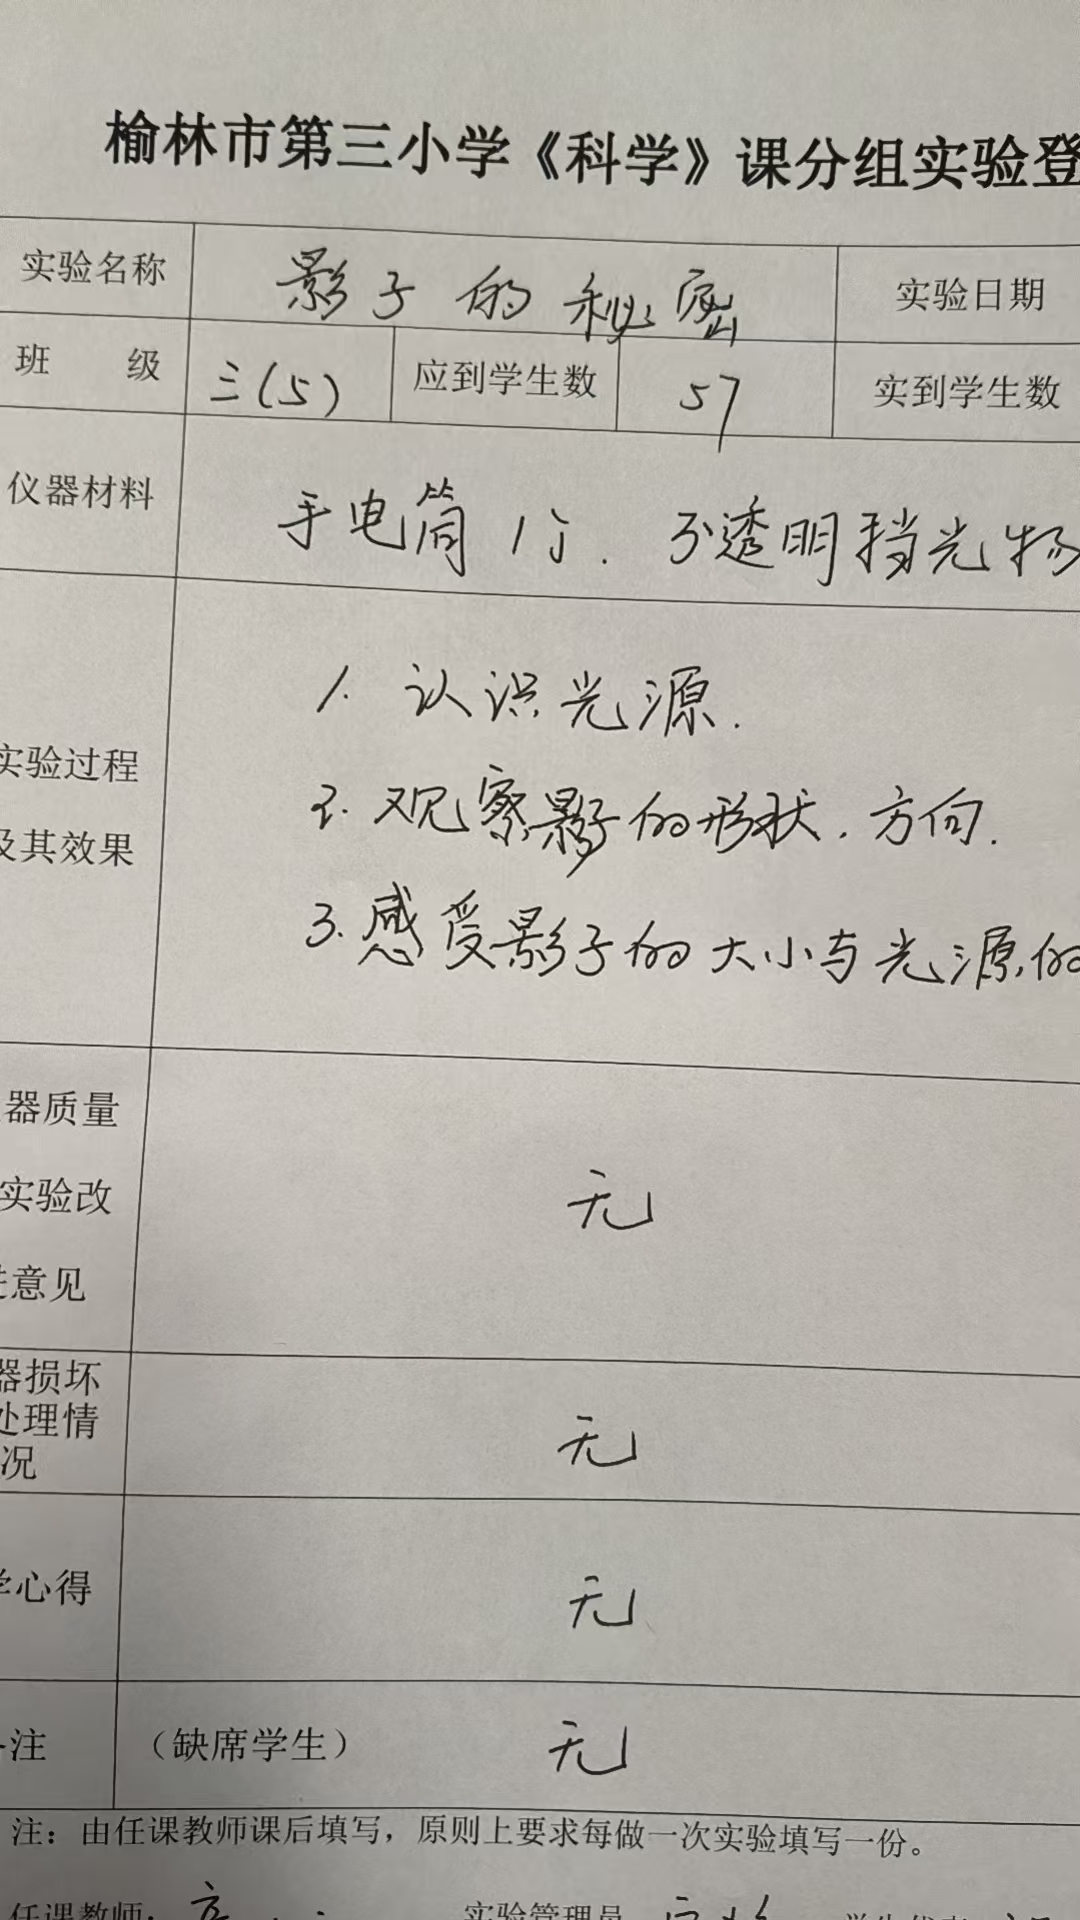 榆林市第三小学《科学》课分组实验登
实验名称 影子的秘密 实验日期
班 级 三(5) 应到学生数 57 实到学生数
仪器材料 手电筒1个. 不透明挡光物
1. 认识光源.
实验过程
2. 观察影子的形状.方向.
及其效果
3. 感受影子的大小与光源的
器质量
实验改
无
进意见
器损坏
处理情 无
况
学心得 无
注 (缺席学生) 无
注：由任课教师课后填写，原则上要求每做一次实验填写一份。
任课教师: 实验管理员 学生代表